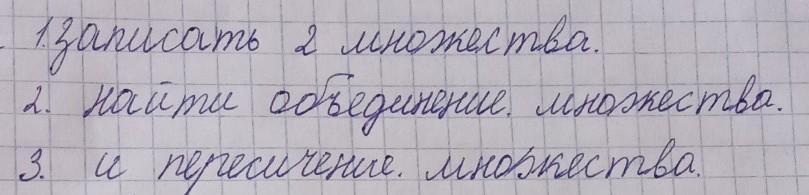 1. Записать 2 множества.
2. найти объединение. множества.
3. и пересичение. множества.